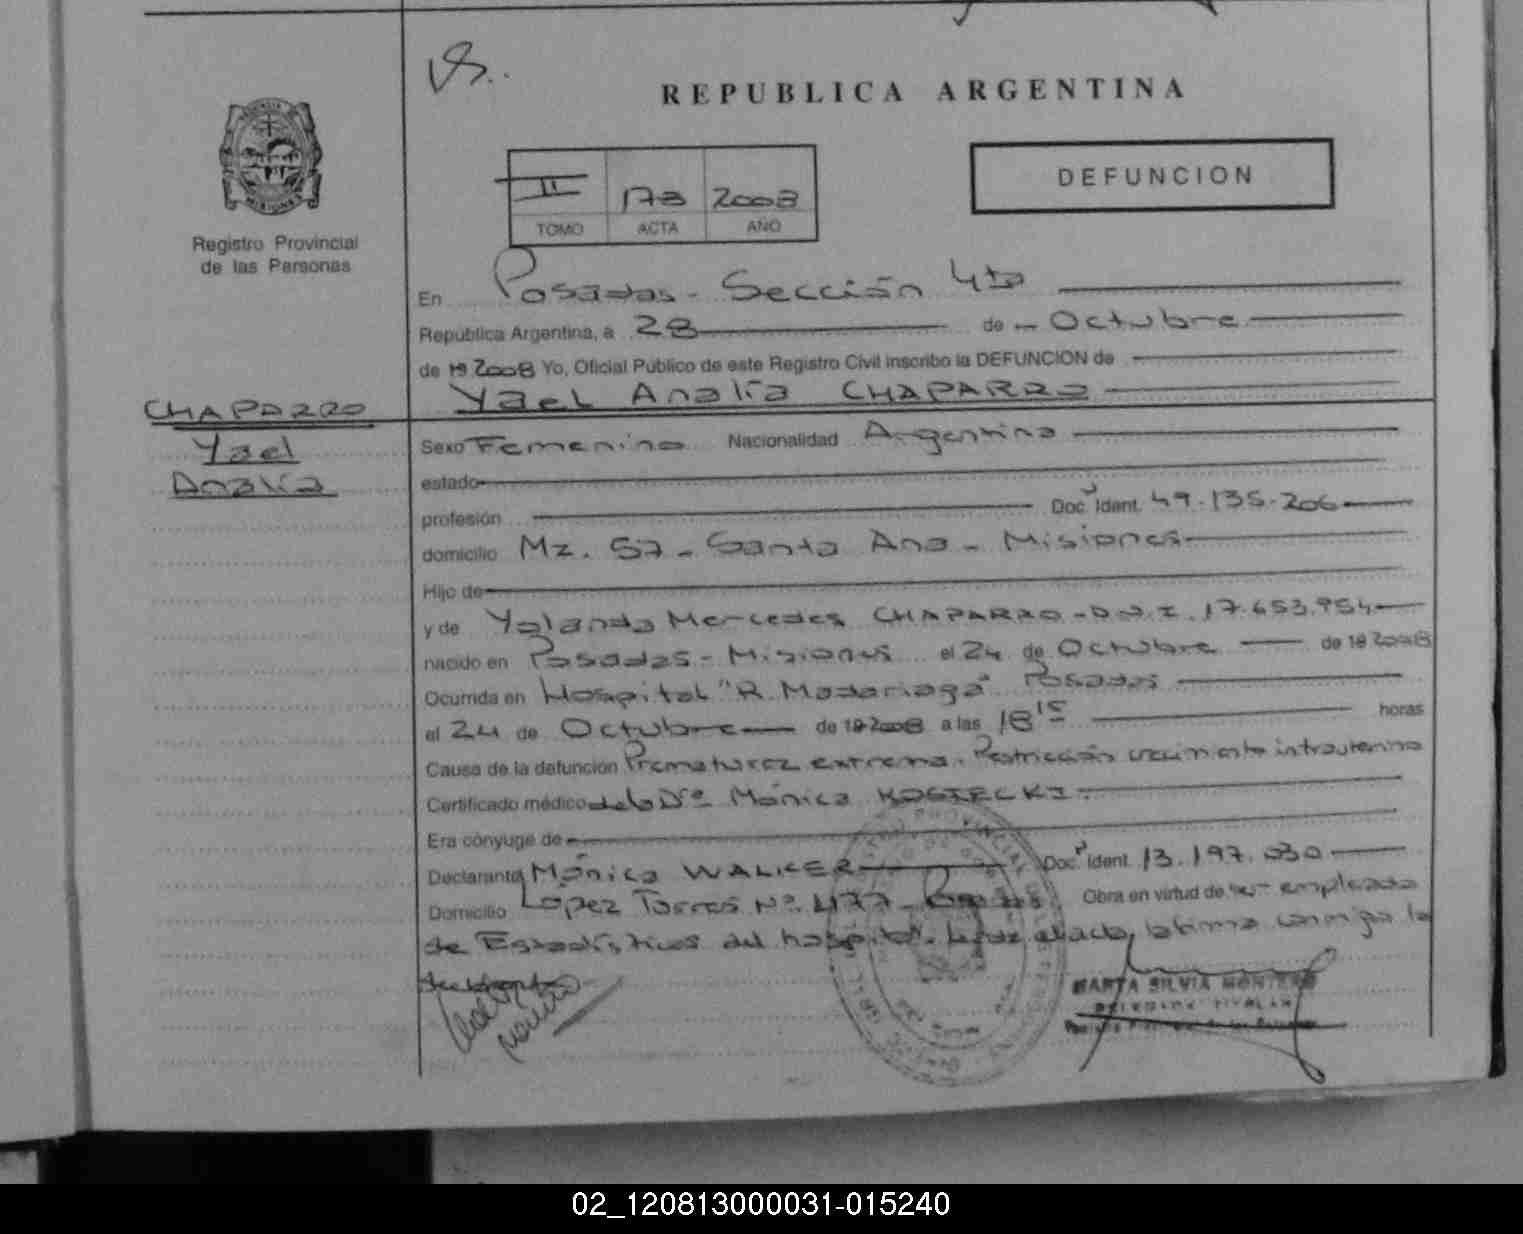 REPUBLICA ARGENTINA
DEFUNCION
II 173 2008
TOMO ACTA AÑO
Registro Provincial
de las Personas
MISIONES
En Posadas - Sección 4ta
República Argentina, a 28 de Octubre
de 19 2008 Yo, Oficial Público de este Registro Civil inscribo la DEFUNCION de
Yael Analía CHAPARRO
CHAPARRO
Yael
Analía
Sexo Femenino Nacionalidad Argentina
estado
profesión Doc. Ident. 49.135.206
domicilio Mz. 57 - Santa Ana - Misiones
Hijo de
y de Yolanda Mercedes CHAPARRO - D.N.I. 17.653.954
nacido en Posadas - Misiones el 24 de Octubre de 19 2008
Ocurrida en Hospital "R. Madariaga" Posadas
el 24 de Octubre de 19 2008 a las 18 15 horas
Causa de la defunción Prematurez extrema. Restricción crecimiento intrauterino
Certificado médico de la Dra. Mónica KOSIECKI.
Era cónyuge de
Declarante Mónica WALKER Doc. Ident. 13.197.030
Domicilio López Torres Nº. 477 - Posadas Obra en virtud de ser empleada
de Estadísticas del hospital. Leída el acta, la firma conmigo la
MARTA SILVIA MONTERO
02_120813000031-015240